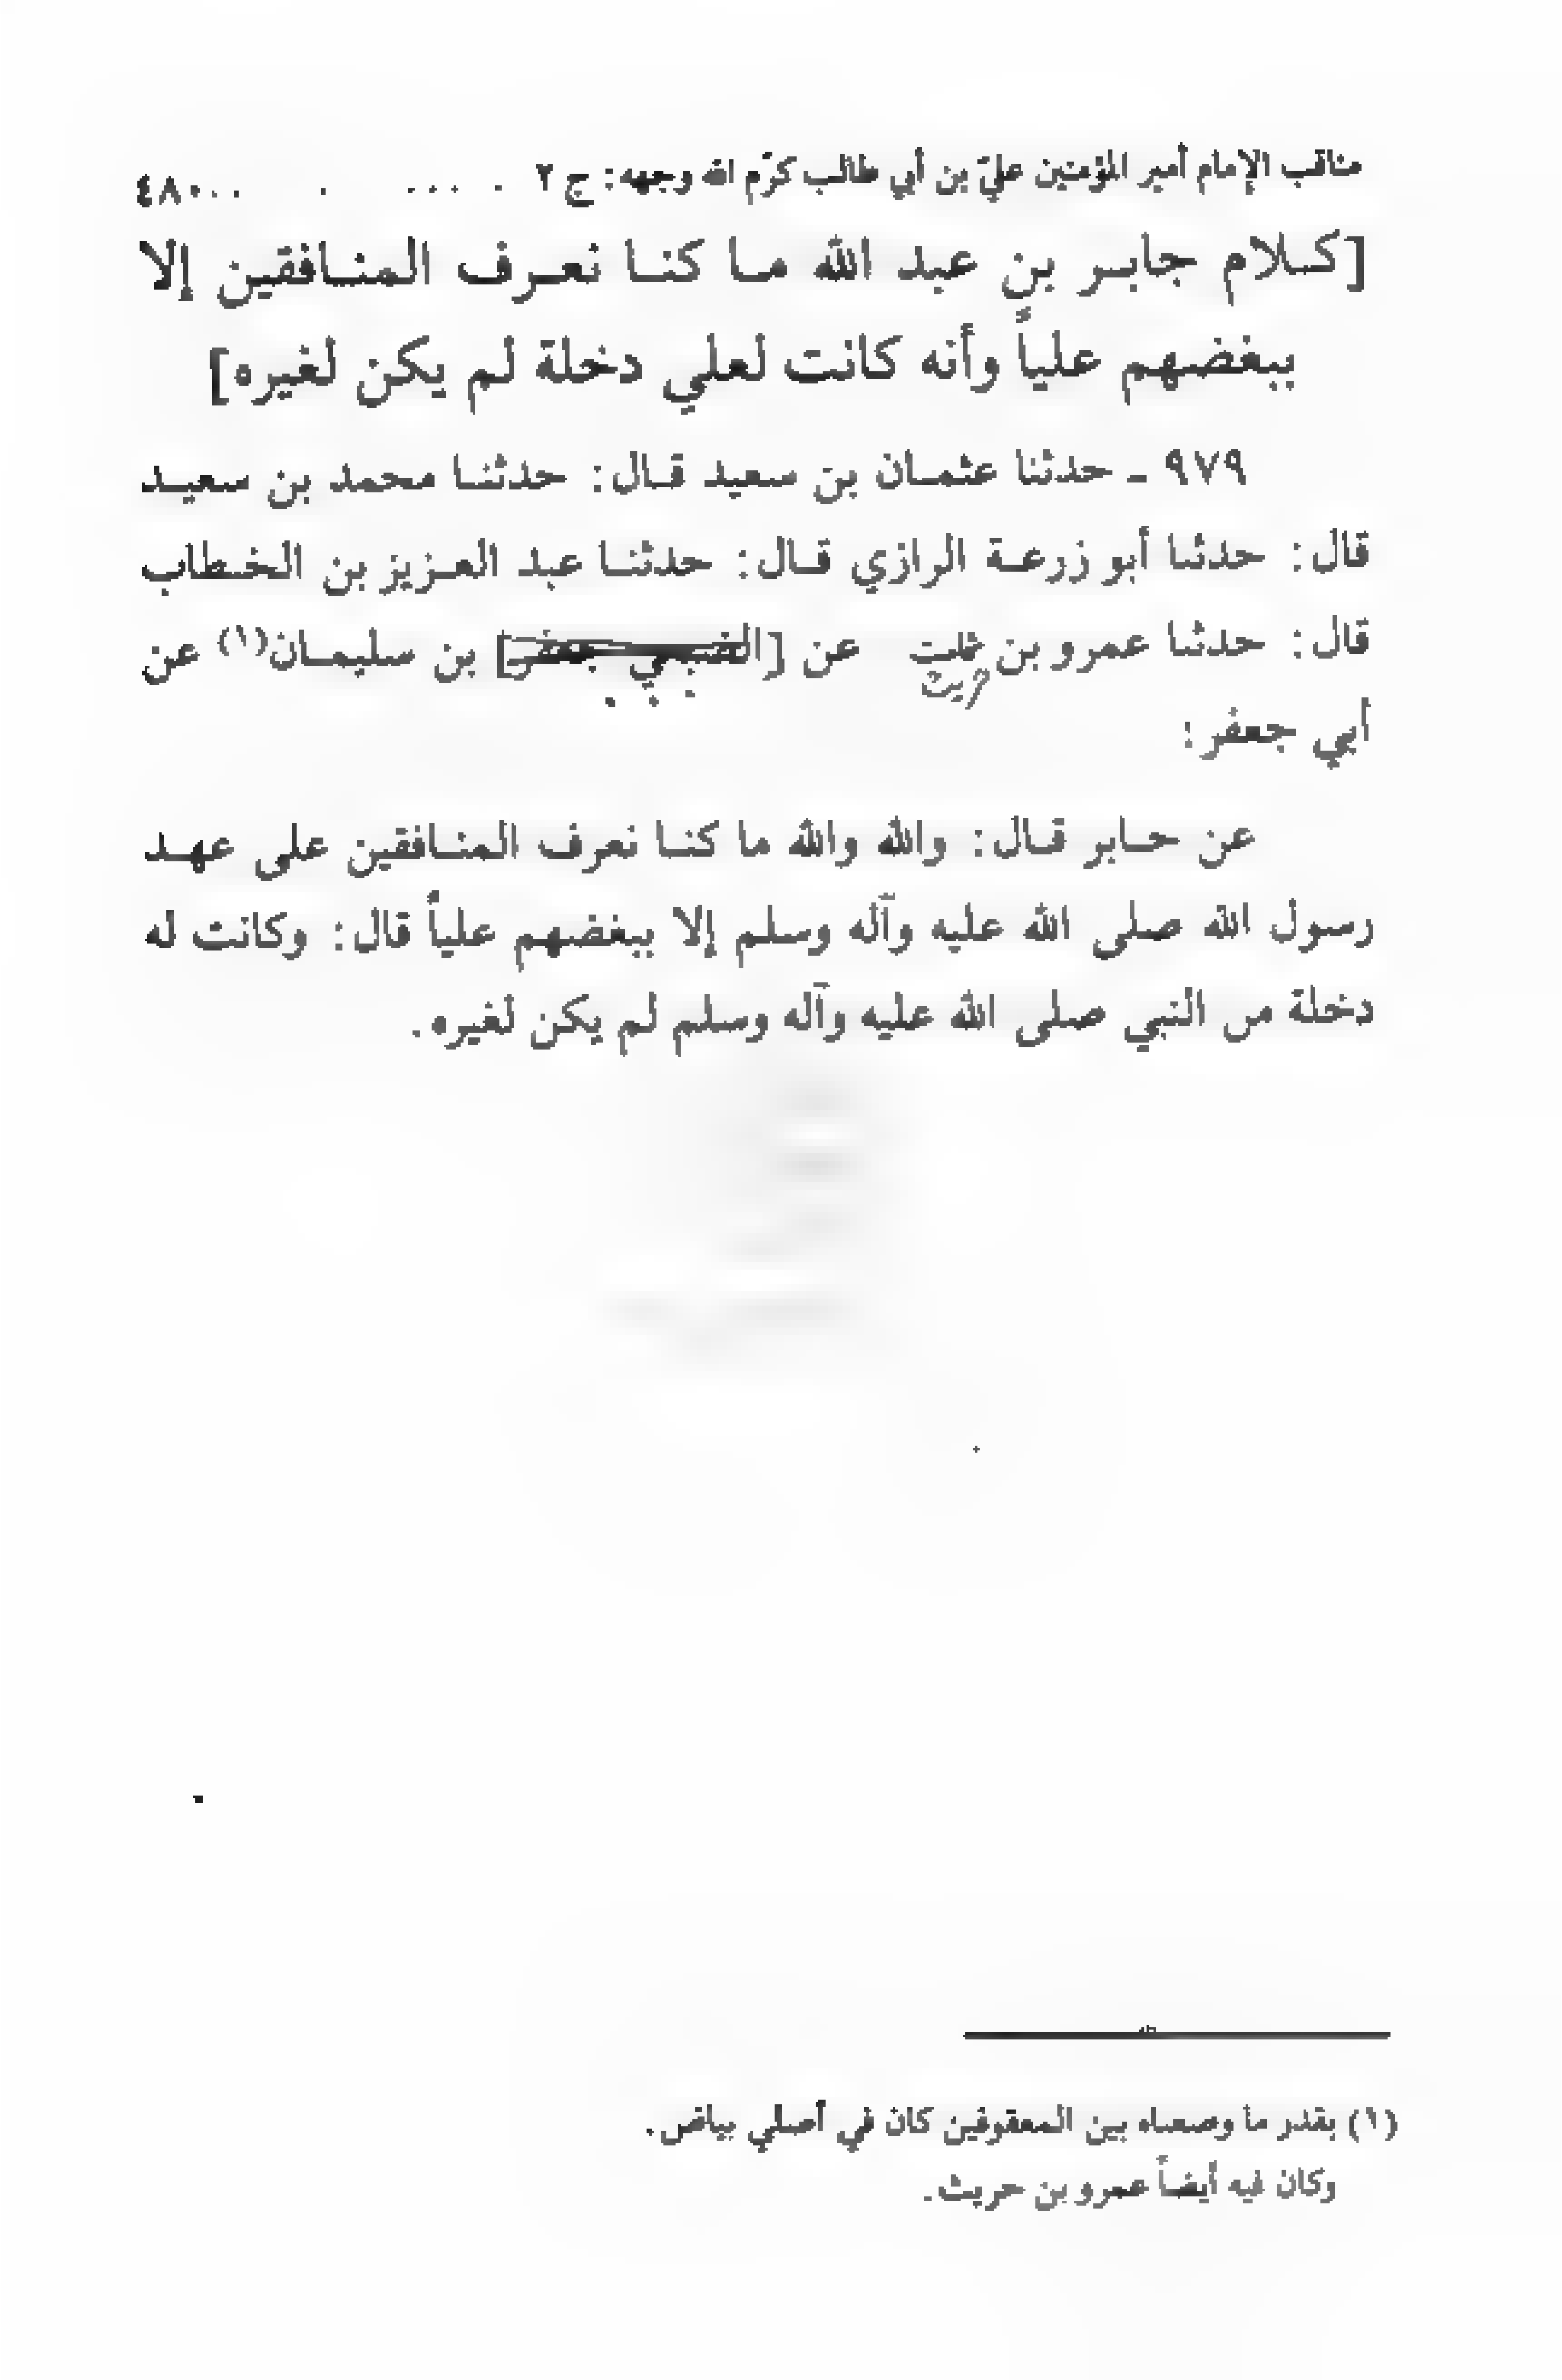 مناقب الإمام أمير المؤمنين عليّ بن أبي طالب كرّم الله وجهه: ج ٢ . . . . . . . ٤٨٠
[كـلام جابـر بن عبد الله مـا كنـا نعـرف المنـافقين إلا
ببغضهم علياً وأنه كانت لعلي دخلة لم يكن لغيره]
٩٧٩ ـ حدثنا عثمـان بن سعيد قـال: حدثنـا محمد بن سعيـد
قال: حدثنا أبو زرعـة الرازي قـال: حدثنـا عبد العـزيز بن الخـطاب
قال: حدثنا عمرو بن عن [الضبـعي جعفر] بن سليمـان(١) عن
حريث
أبي جعفر:
عن جـابر قـال: والله والله ما كنـا نعرف المنـافقين على عهـد
رسول الله صلى الله عليه وآله وسلم إلا ببغضهم علياً قال: وكانت له
دخلة من النبي صلى الله عليه وآله وسلم لم يكن لغيره.
(١) بقدر ما وضعناه بين المعقوفين كان في أصلي بياض.
وكان فيه أيضاً عمرو بن حريث.